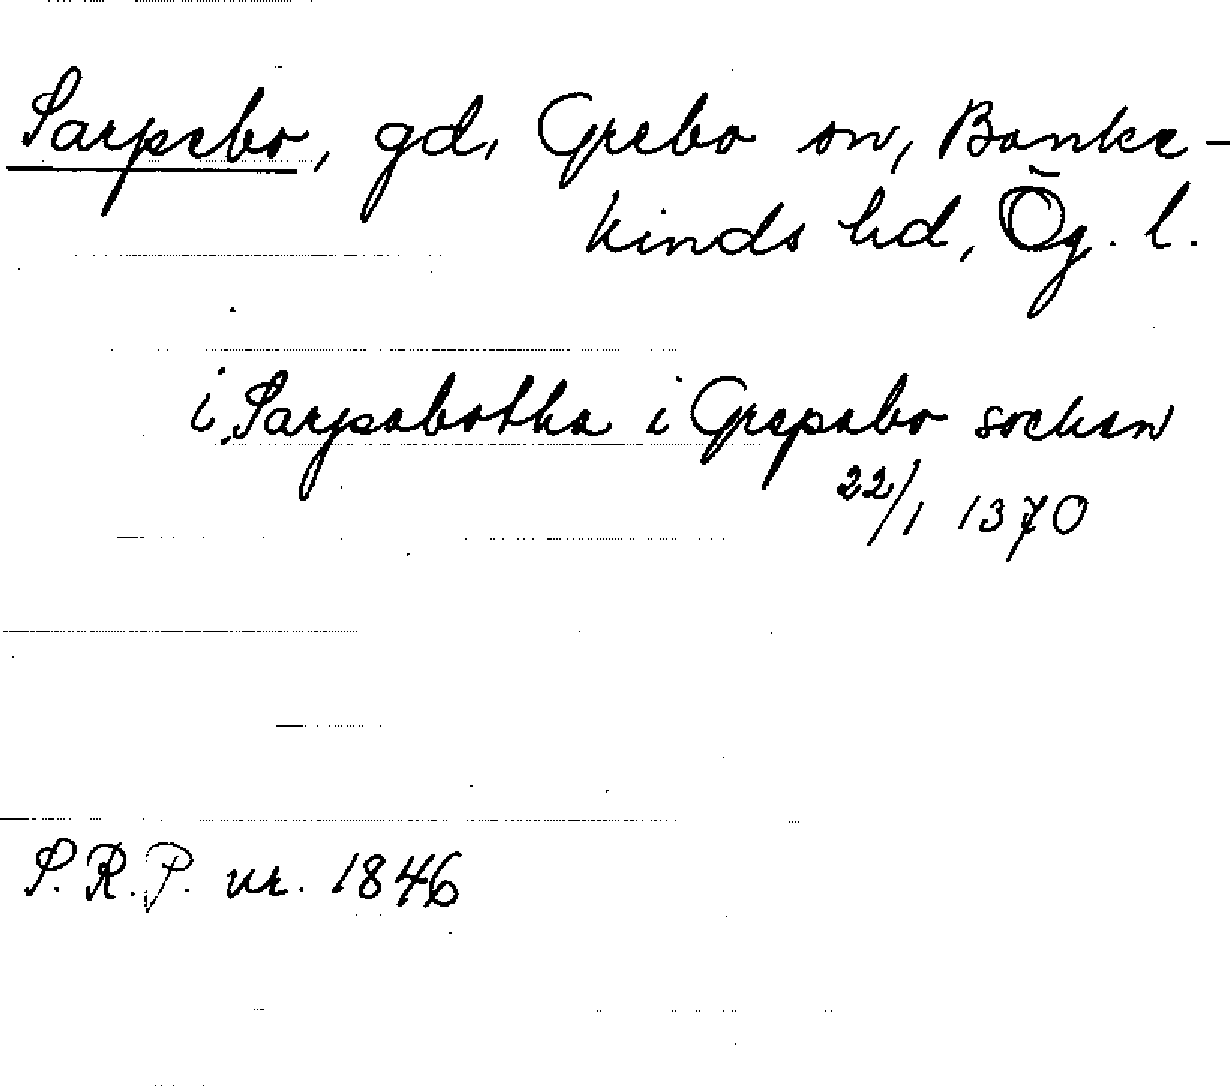 Sarpebo, gd, Grebo sn, Banke-
kinds hd, Ög. l.
i Sarpabotha i Grepabo sockan
22/1 1370
S.R.P. nr. 1846